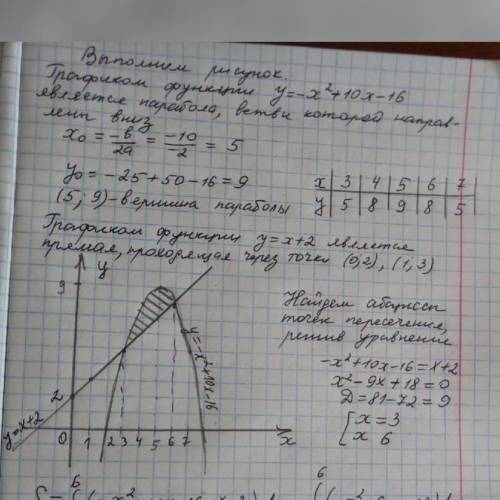 Выполнем рисунок.
Графиком функции y=-x²+10x-16
является парабола, ветви которой направ-
лены вниз
x₀ = -b/2a = -10/-2 = 5
y₀ = -25+50-16=9
(5; 9)-вершина параболы
x | 3 | 4 | 5 | 6 | 7
y | 5 | 8 | 9 | 8 | 5
Графиком функции y=x+2 является
прямая, проходящая через точки (0,2), (1,3)
y
9
2
y=x+2
0 1 2 3 4 5 6 7
x
y=-x²+10x-16
Найдем абциссы
точек пересечения,
решив уравнение
-x²+10x-16=x+2
x²-9x+18=0
D=81-72=9
x=3
x 6
6
6